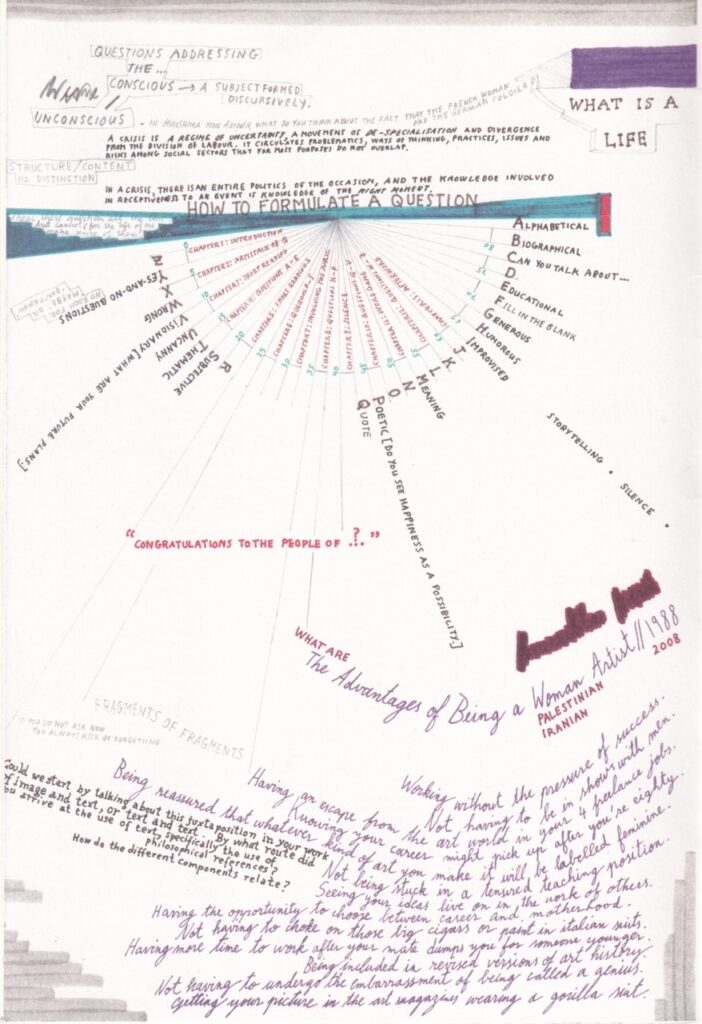 QUESTIONS ADDRESSING
THE...
CONSCIOUS → A SUBJECT FORMED
DISCURSIVELY.
UNCONSCIOUS
- IN HIROSHIMA MON AMOUR WHAT DO YOU THINK ABOUT THE FACT THAT THE FRENCH WOMAN
AND THE GERMAN SOLDIER?
WHAT IS A
LIFE
A CRISIS IS A REGIME OF UNCERTAINTY, A MOVEMENT OF DE-SPECIALISATION AND DIVERGENCE
FROM THE DIVISION OF LABOUR. IT CIRCULATES PROBLEMATICS, WAYS OF THINKING, PRACTICES, ISSUES AND
RISKS AMONG SOCIAL SECTORS THAT FOR MOST PURPOSES DO NOT OVERLAP.
STRUCTURE/CONTENT
NO DISTINCTION
IN A CRISIS, THERE IS AN ENTIRE POLITICS OF THE OCCASION, AND THE KNOWLEDGE INVOLVED
IN RECEPTIVENESS TO AN EVENT IS KNOWLEDGE OF THE RIGHT MOMENT.
HOW TO FORMULATE A QUESTION
ALPHABETICAL
BIOGRAPHICAL
CAN YOU TALK ABOUT...
D
EDUCATIONAL
FILL IN THE BLANK
GENEROUS
HUMOROUS
IMPROVISED
J
K
L
MEANING
N
O
POETIC [DO YOU SEE HAPPINESS AS A POSSIBILITY.]
QUOTE
R
SUBJECTIVE
THEMATIC
UNCANNY
VISIONARY [WHAT ARE YOUR FUTURE PLANS.]
WRONG
X
YES-AND-NO QUESTIONS
Z
STORYTELLING • SILENCE •
0
5
10
15
20
25
30
35
40
50
55
65
70
75
80
CHAPTER 1: INTRODUCTION
CHAPTER 9: SILENCE
"CONGRATULATIONS TO THE PEOPLE OF ...?"
WHAT ARE
The Advantages of Being a Woman Artist // 1988
PALESTINIAN 2008
IRANIAN
FRAGMENTS OF FRAGMENTS
IF YOU DO NOT ASK NOW
YOU ALWAYS RISK OF FORGETTING
Could we start by talking about this juxtaposition in your work
of image and text, or text and text.. By what route did
you arrive at the use of text, specifically the use of
philosophical references?
How do the different components relate?
Working without the pressure of success.
Not having to be in shows with men.
Having an escape from the art world in your 4 freelance jobs.
Knowing your career might pick up after you're eighty.
Being reassured that whatever kind of art you make it will be labelled feminine.
Not being stuck in a tenured teaching position.
Seeing your ideas live on in the work of others.
Having the opportunity to choose between career and motherhood.
Not having to choke on those big cigars or paint in italian suits.
Having more time to work after your mate dumps you for someone younger.
Being included in revised versions of art history
Not having to undergo the embarrassment of being called a genius.
Getting your picture in the art magazines wearing a gorilla suit.